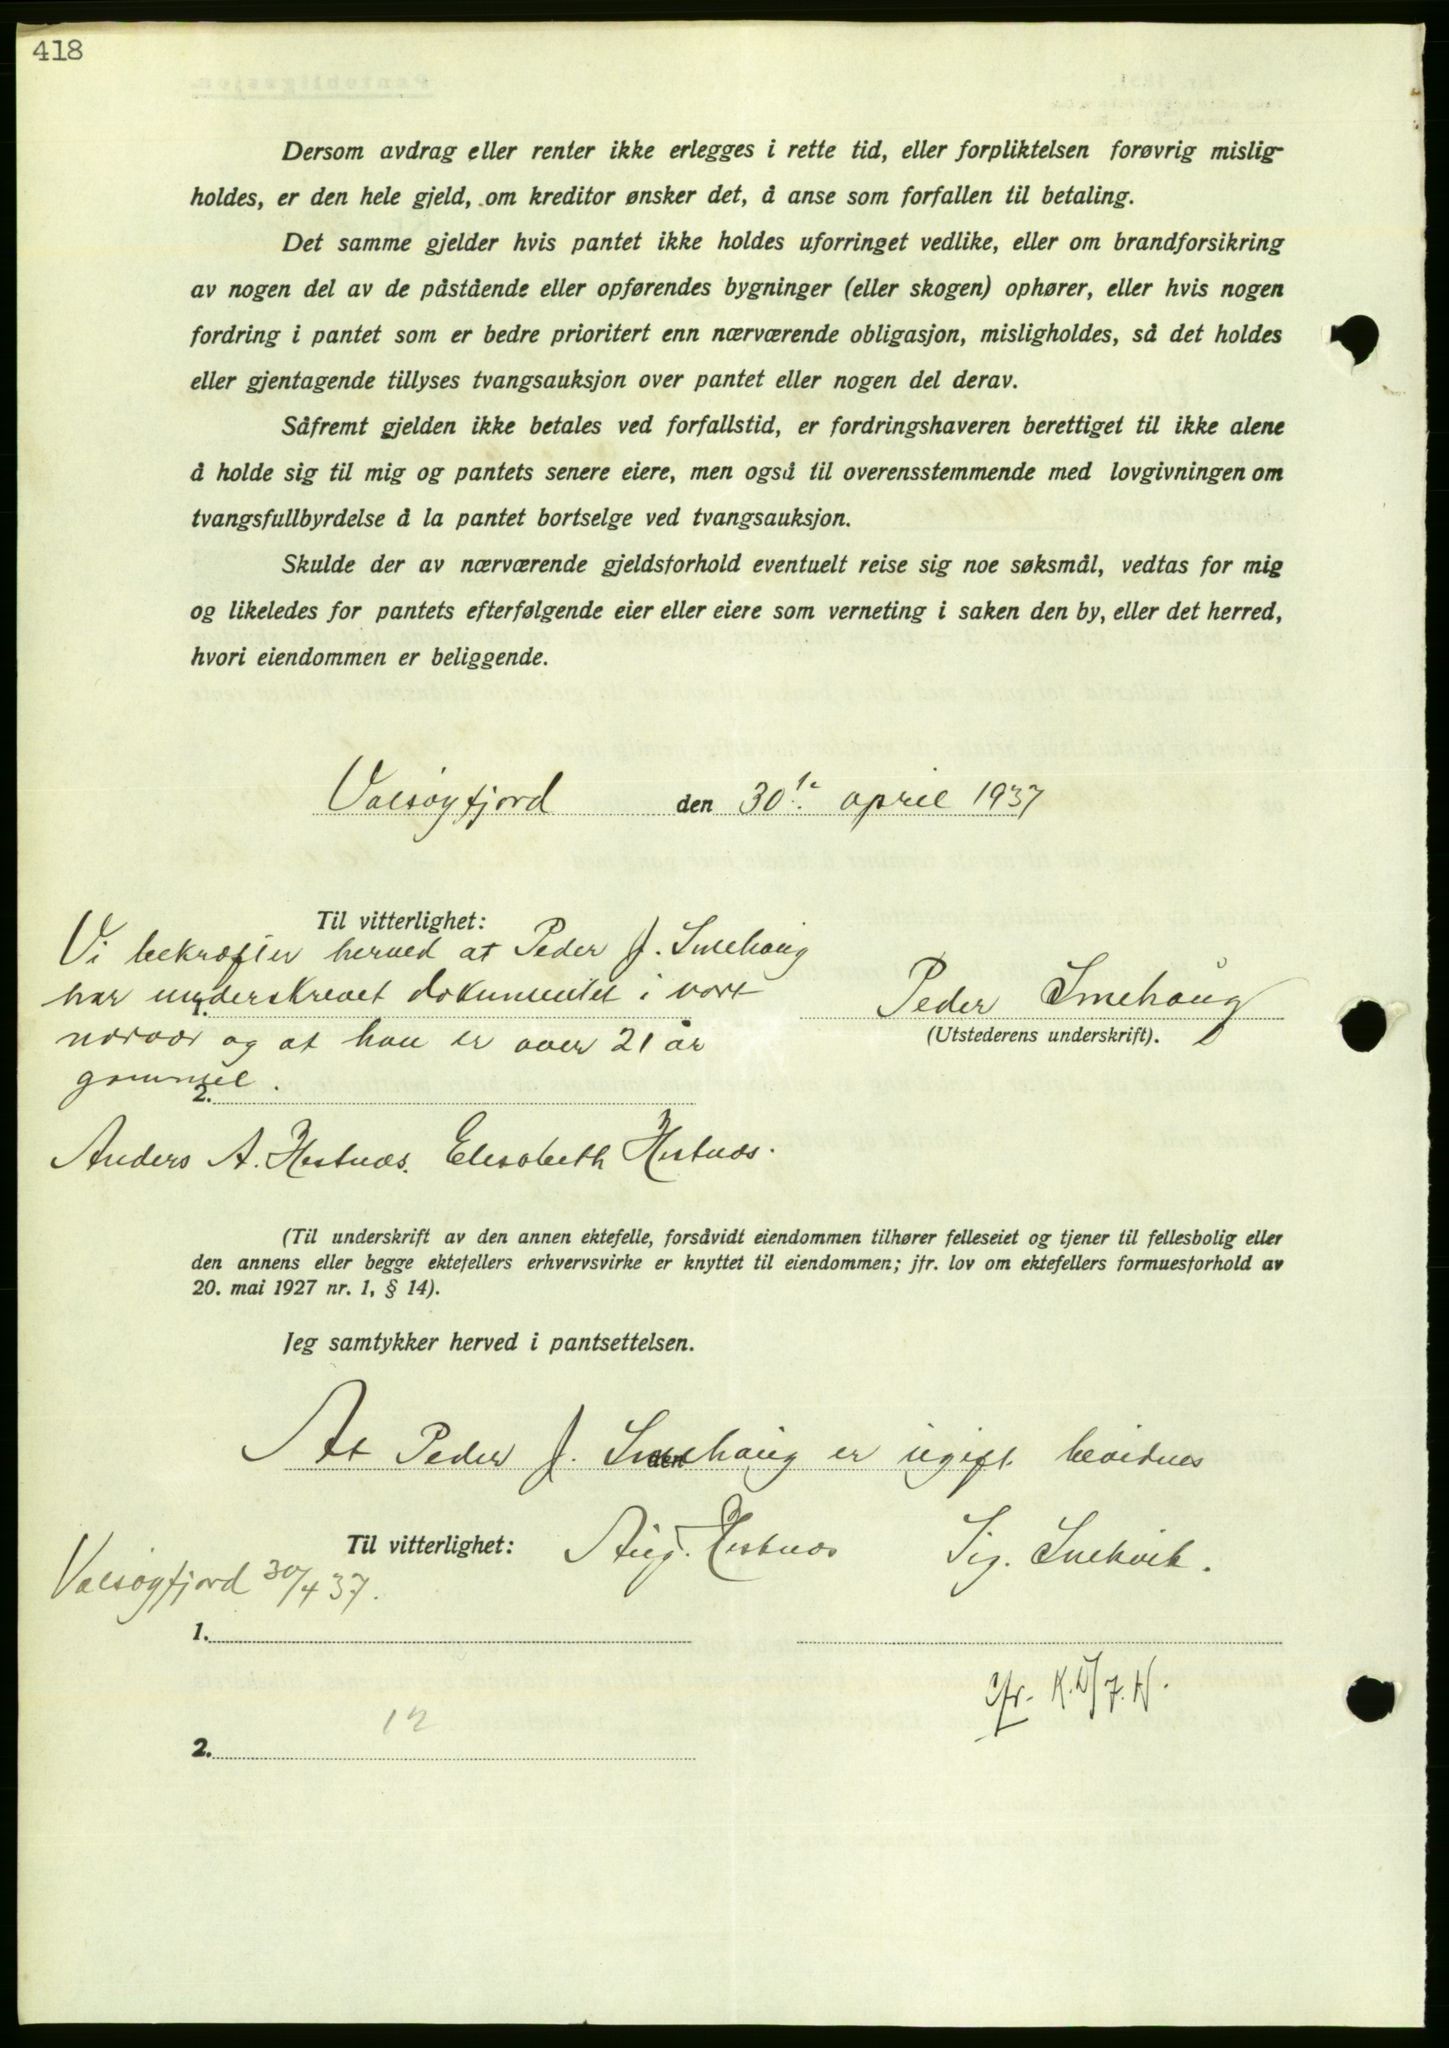 418
Dersom avdrag eller renter ikke erlegges i rette tid, eller forpliktelsen forøvrig mislig-
holdes, er den hele gjeld, om kreditor ønsker det, å anse som forfallen til betaling.
Det samme gjelder hvis pantet ikke holdes uforringet vedlike, eller om brandforsikring
av nogen del av de påstående eller opførendes bygninger (eller skogen) ophører, eller hvis nogen
fordring i pantet som er bedre prioritert enn nærværende obligasjon, misligholdes, så det holdes
eller gjentagende tillyses tvangsauksjon over pantet eller nogen del derav.
Såfremt gjelden ikke betales ved forfallstid, er fordringshaveren berettiget til ikke alene
å holde sig til mig og pantets senere eiere, men også til overensstemmende med lovgivningen om
tvangsfullbyrdelse å la pantet bortselge ved tvangsauksjon.
Skulde der av nærværende gjeldsforhold eventuelt reise sig noe søksmål, vedtas for mig
og likeledes for pantets efterfølgende eier eller eiere som verneting i saken den by, eller det herred,
hvori eiendommen er beliggende.
Valsøyfjord den 30te april 1937
Til vitterlighet:
Vi bekræfter herved at Peder J. Smehaug
har underskrevet dokumentet i vort
1.
nærvær og at han er over 21 år
gammel.
2.
Peder Smehaug
(Utstederens underskrift).
Anders A. Hestnæs. Elisabeth Hestnæs.
(Til underskrift av den annen ektefelle, forsåvidt eiendommen tilhører felleseiet og tjener til fellesbolig eller
den annens eller begge ektefellers erhvervsvirke er knyttet til eiendommen; jfr. lov om ektefellers formuesforhold av
20. mai 1927 nr. 1, § 14).
Jeg samtykker herved i pantsettelsen.
At Peder J. Smehaug er ugift bevidnes
den
Til vitterlighet: Aug. Hestnæs Sig. Snekvik.
Valsøyfjord 30/4 37.
1.
cfr.
12
2.